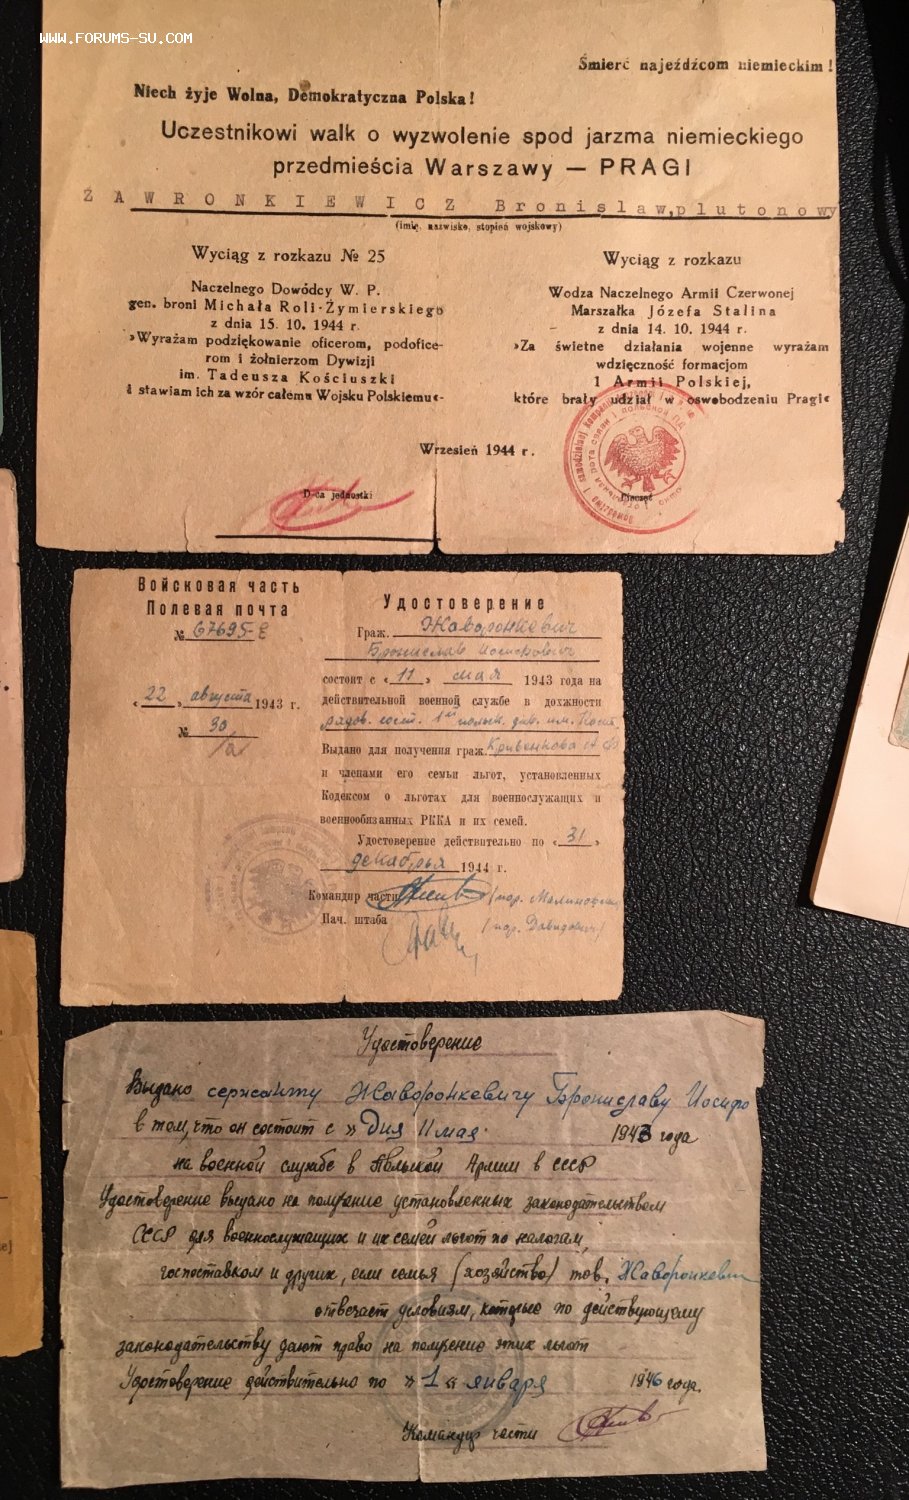 WWW.FORUMS-SU.COM
Śmierć najeźdźcom niemieckim!
Niech żyje Wolna, Demokratyczna Polska!
Uczestnikowi walk o wyzwolenie spod jarzma niemieckiego
przedmieścia Warszawy — PRAGI
ŻAWRONKIEWICZ Bronisław, plutonowy
(imię, nazwisko, stopień wojskowy)
Wyciąg z rozkazu № 25
Naczelnego Dowódcy W. P.
gen. broni Michała Roli-Żymierskiego
z dnia 15. 10. 1944 r.
»Wyrażam podziękowanie oficerom, podofice-
rom i żołnierzom Dywizji
im. Tadeusza Kościuszki
i stawiam ich za wzór całemu Wojsku Polskiemu«-
Wyciąg z rozkazu
Wodza Naczelnego Armii Czerwonej
Marszałka Józefa Stalina
z dnia 14. 10. 1944 r.
»Za świetne działania wojenne wyrażam
wdzięczność formacjom
1 Armii Polskiej,
które brały udział w oswobodzeniu Pragi«
Wrzesień 1944 r.
D-ca jednostki
Pieczęć
Войсковая часть
Полевая почта
№ 67695-Е
«22» августа 1943 г.
№ 30
Удостоверение
Граж. Жаворонкевич
Бронислав Иосифович
состоит с «11» мая 1943 года на
действительной военной службе в должности
рядов. сост. 1ой польск. див. им. Кост.
Выдано для получения граж. Кривенкова
и членами его семьи льгот, установленных
Кодексом о льготах для военнослужащих и
военнообязанных РККА и их семей.
Удостоверение действительно по «31»
декабря 1944 г.
Командир части /пор. Малиновский
Нач. штаба /пор. Давидович/
Удостоверение
Выдано сержанту Жаворонкевичу Брониславу Иосифо
в том, что он состоит с » Дня 11 мая 1943 года
на военной службе в Польской Армии в СССР
Удостоверение выдано на получение установленных законодательством
СССР для военнослужащих и их семей льгот по налогам,
госпоставком и других, если семья (хозяйство) тов. Жаворонкевич
отвечает условиям, которые по действующему
законодательству дают право на получение этих льгот
Удостоверение действительно по »1« января 1946 года.
Командир части